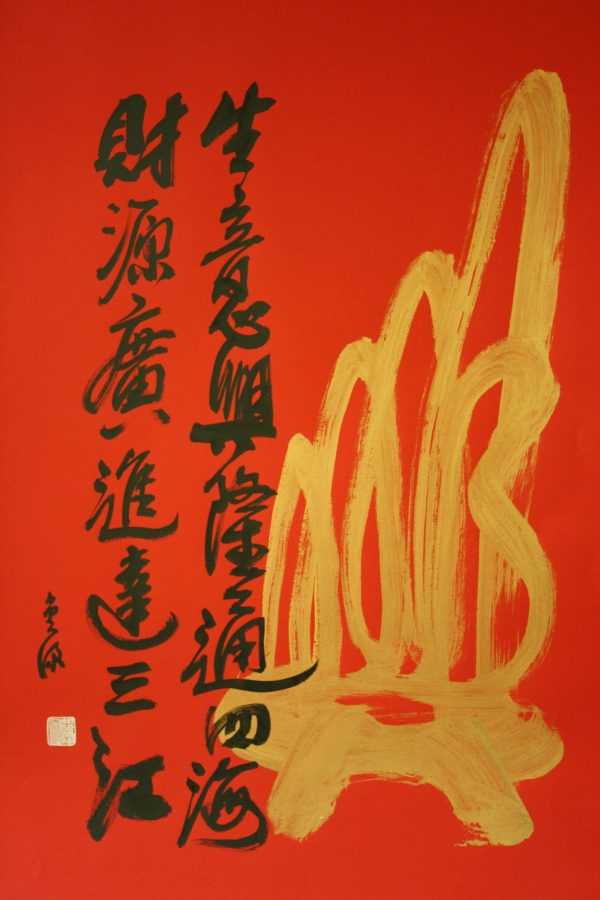 生意興隆通四海
財源廣進達三江